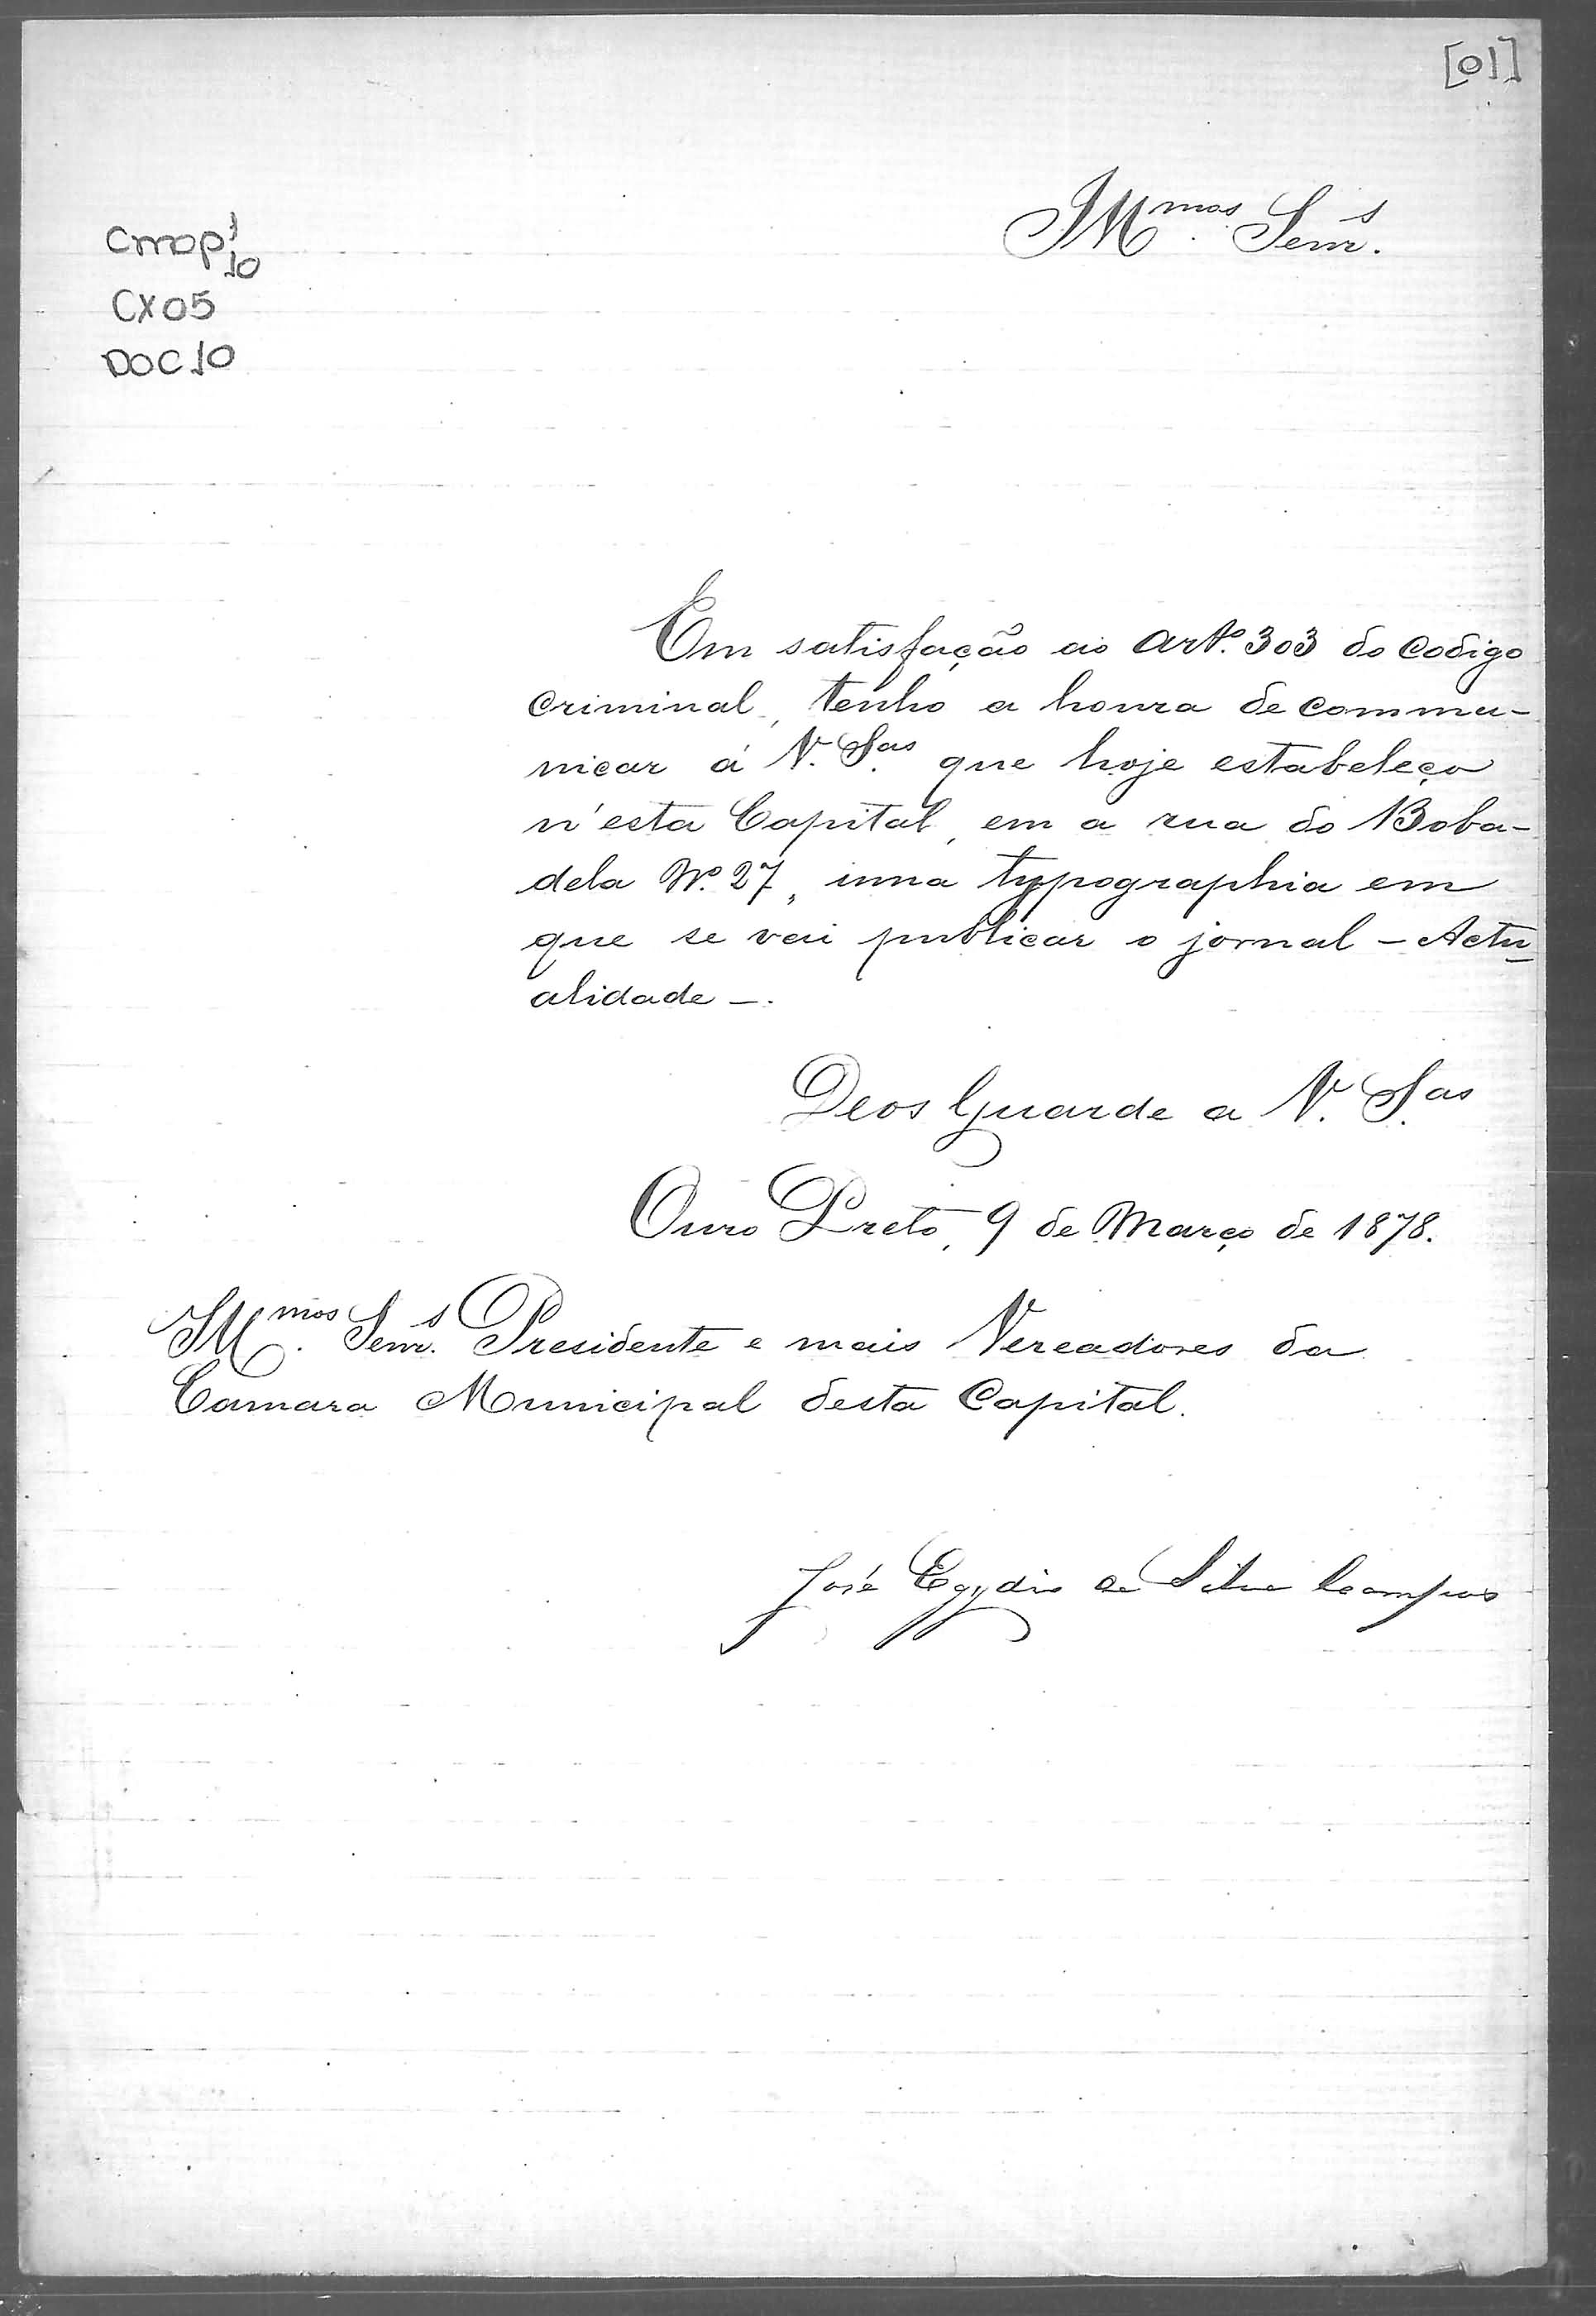 [01]
Illmos. Senrs.
CMOP 1/10
CX05
DOC10
Em satisfação ao Arto. 303 do Codigo
Criminal, tenho a honra de commu-
nicar á V. Sas. que hoje estabeleço
n'esta Capital, em a rua do Boba-
dela No. 27, uma typographia em
que se vai publicar o jornal - Actu-
alidade -.
Deos Guarde a V. Sas.
Ouro Preto, 9 de Março de 1878.
Illmos. Senrs. Presidente e mais Vereadores da
Camara Municipal desta Capital.
José Egydio da Silva Campos